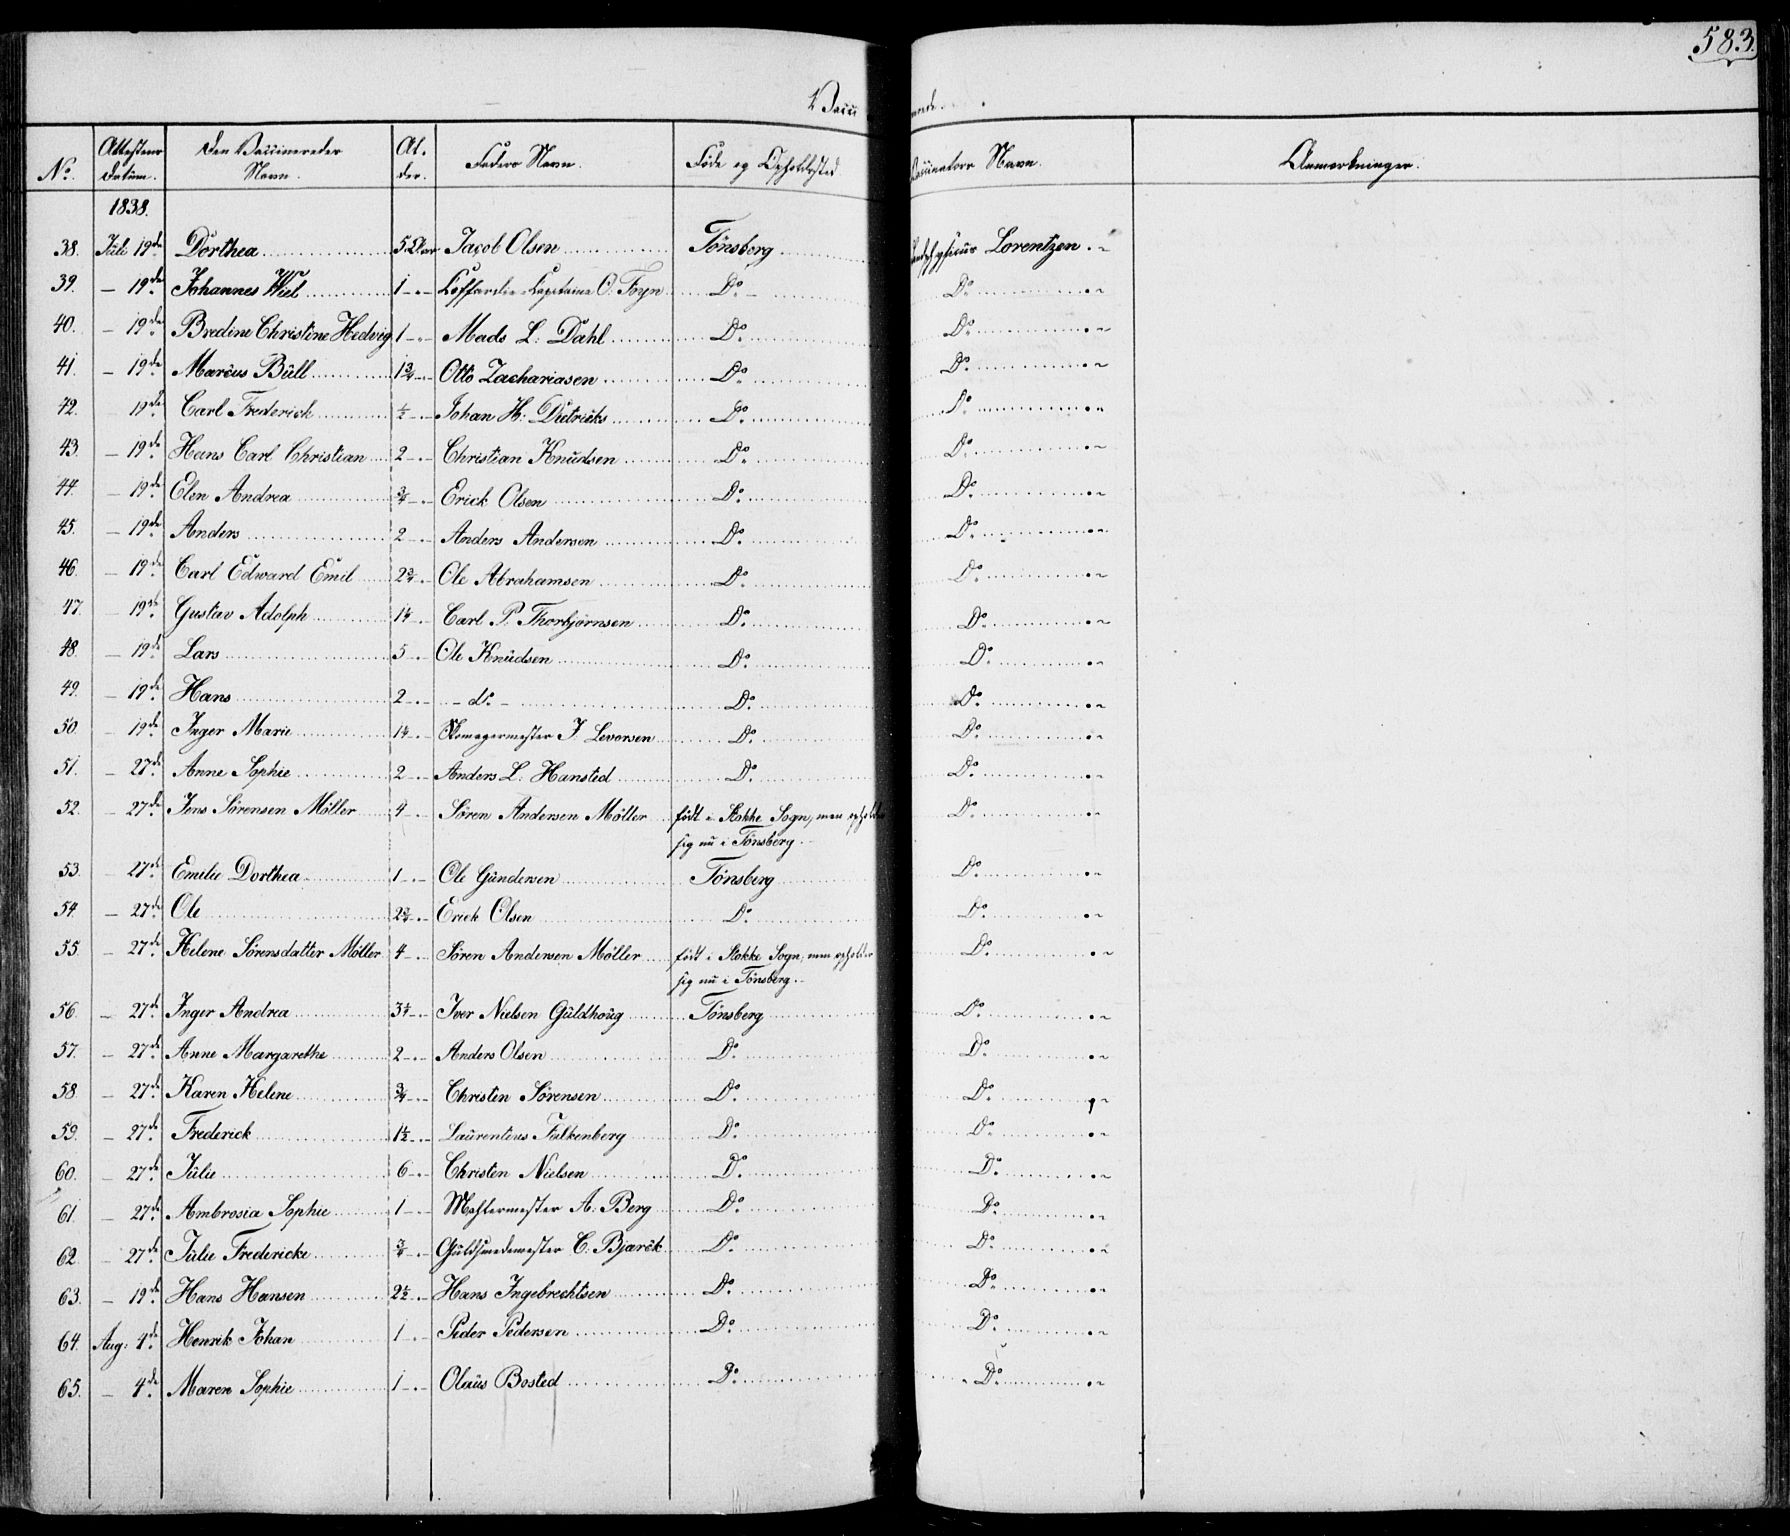 583.
Vaccinerede.
No. Attestens Datum. Den Vaccineredes Navn. Al- der. Faders Navn. Føde og Opholdssted Vaccinateurs Navn. Anmærkninger.
1838.
38. Juli 19de Dorthea 5 Aar Jacob Olsen Tønsberg Landphysicus Lorentzen
39. – 19de Johannes Wiel 1 – Coffardie-Capitaine O. Foyn Do Do
40. – 19de Bredine Christine Hedvig 1 – Mads L. Dahl Do Do
41. – 19de Marcus Bull 1¾ – Otto Zachariasen Do Do
42. 19de Carl Frederick ½ – Johan H. Dietrichs Do Do
43. – 19de Hans Carl Christian 2 – Christian Knudsen Do Do
44. – 19de Elen Andrea ¾ – Erick Olsen Do Do
45. – 19de Anders 2 – Anders Andersen Do Do
46. – 19de Carl Edward Emil 2¾ – Ole Abrahamsen Do Do
47. – 19de Gustav Adolph 1¼ Carl P. Thorbjørnsen Do Do
48. – 19de Lars 5 – Ole Knudsen Do Do
49. – 19de Hans 2 – – do – Do Do
50. – 19de Inger Marie 1¼ – Skomagermester J. Levorsen Do Do
51. – 27de Anne Sophie 2 – Anders L. Hansted Do Do
52. – 27de Jens Sørensen Møller 4 – Søren Andersen Møller født i Stokke Sogn, men opholder
sig nu i Tønsberg Do
53. – 27de Emilie Dorthea 1 – Ole Gundersen Tønsberg Do
54. – 27de Ole 2¾ – Erick Olsen Do Do
55. – 27de Helene Sørensdatter Møller 4 – Søren Andersen Møller født i Stokke Sogn, men opholder
sig nu i Tønsberg Do
56. – 27de Inger Andrea 3¼ – Iver Nielsen Guldhoug Tønsberg Do
57. – 27de Anne Margarethe 2 – Anders Olsen Do Do
58. – 27de Karen Helene ¾ – Christen Sørensen Do Do
59. – 27de Frederick 1½ – Laurentius Falkenberg Do Do
60. – 27de Julie 6 – Christen Nielsen Do Do
61. – 27de Ambrosia Sophie 1 – A. Berg Do Do
62. – 27de Julie Fredericke ¾ – Guldsmedemester C. Bjarck Do Do
63. – 19de Hans Hansen 2½ – Hans Ingebrechtsen Do Do
64. Aug: 4de Henrik Johan 1 – Peder Pedersen Do Do
65. – 4de Maren Sophie 1 – Olaus Bosted Do Do